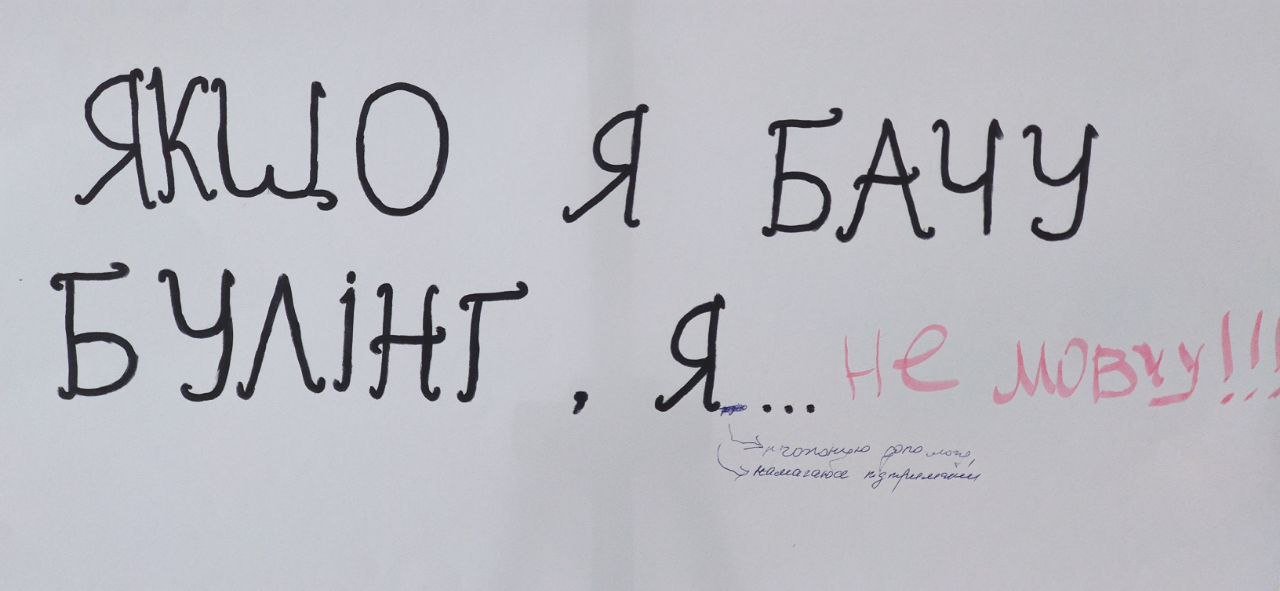 ЯКЩО Я БАЧУ
БУЛІНГ, Я... не мовчу!!!
пропоную допомогу,
намагаюся підтримати